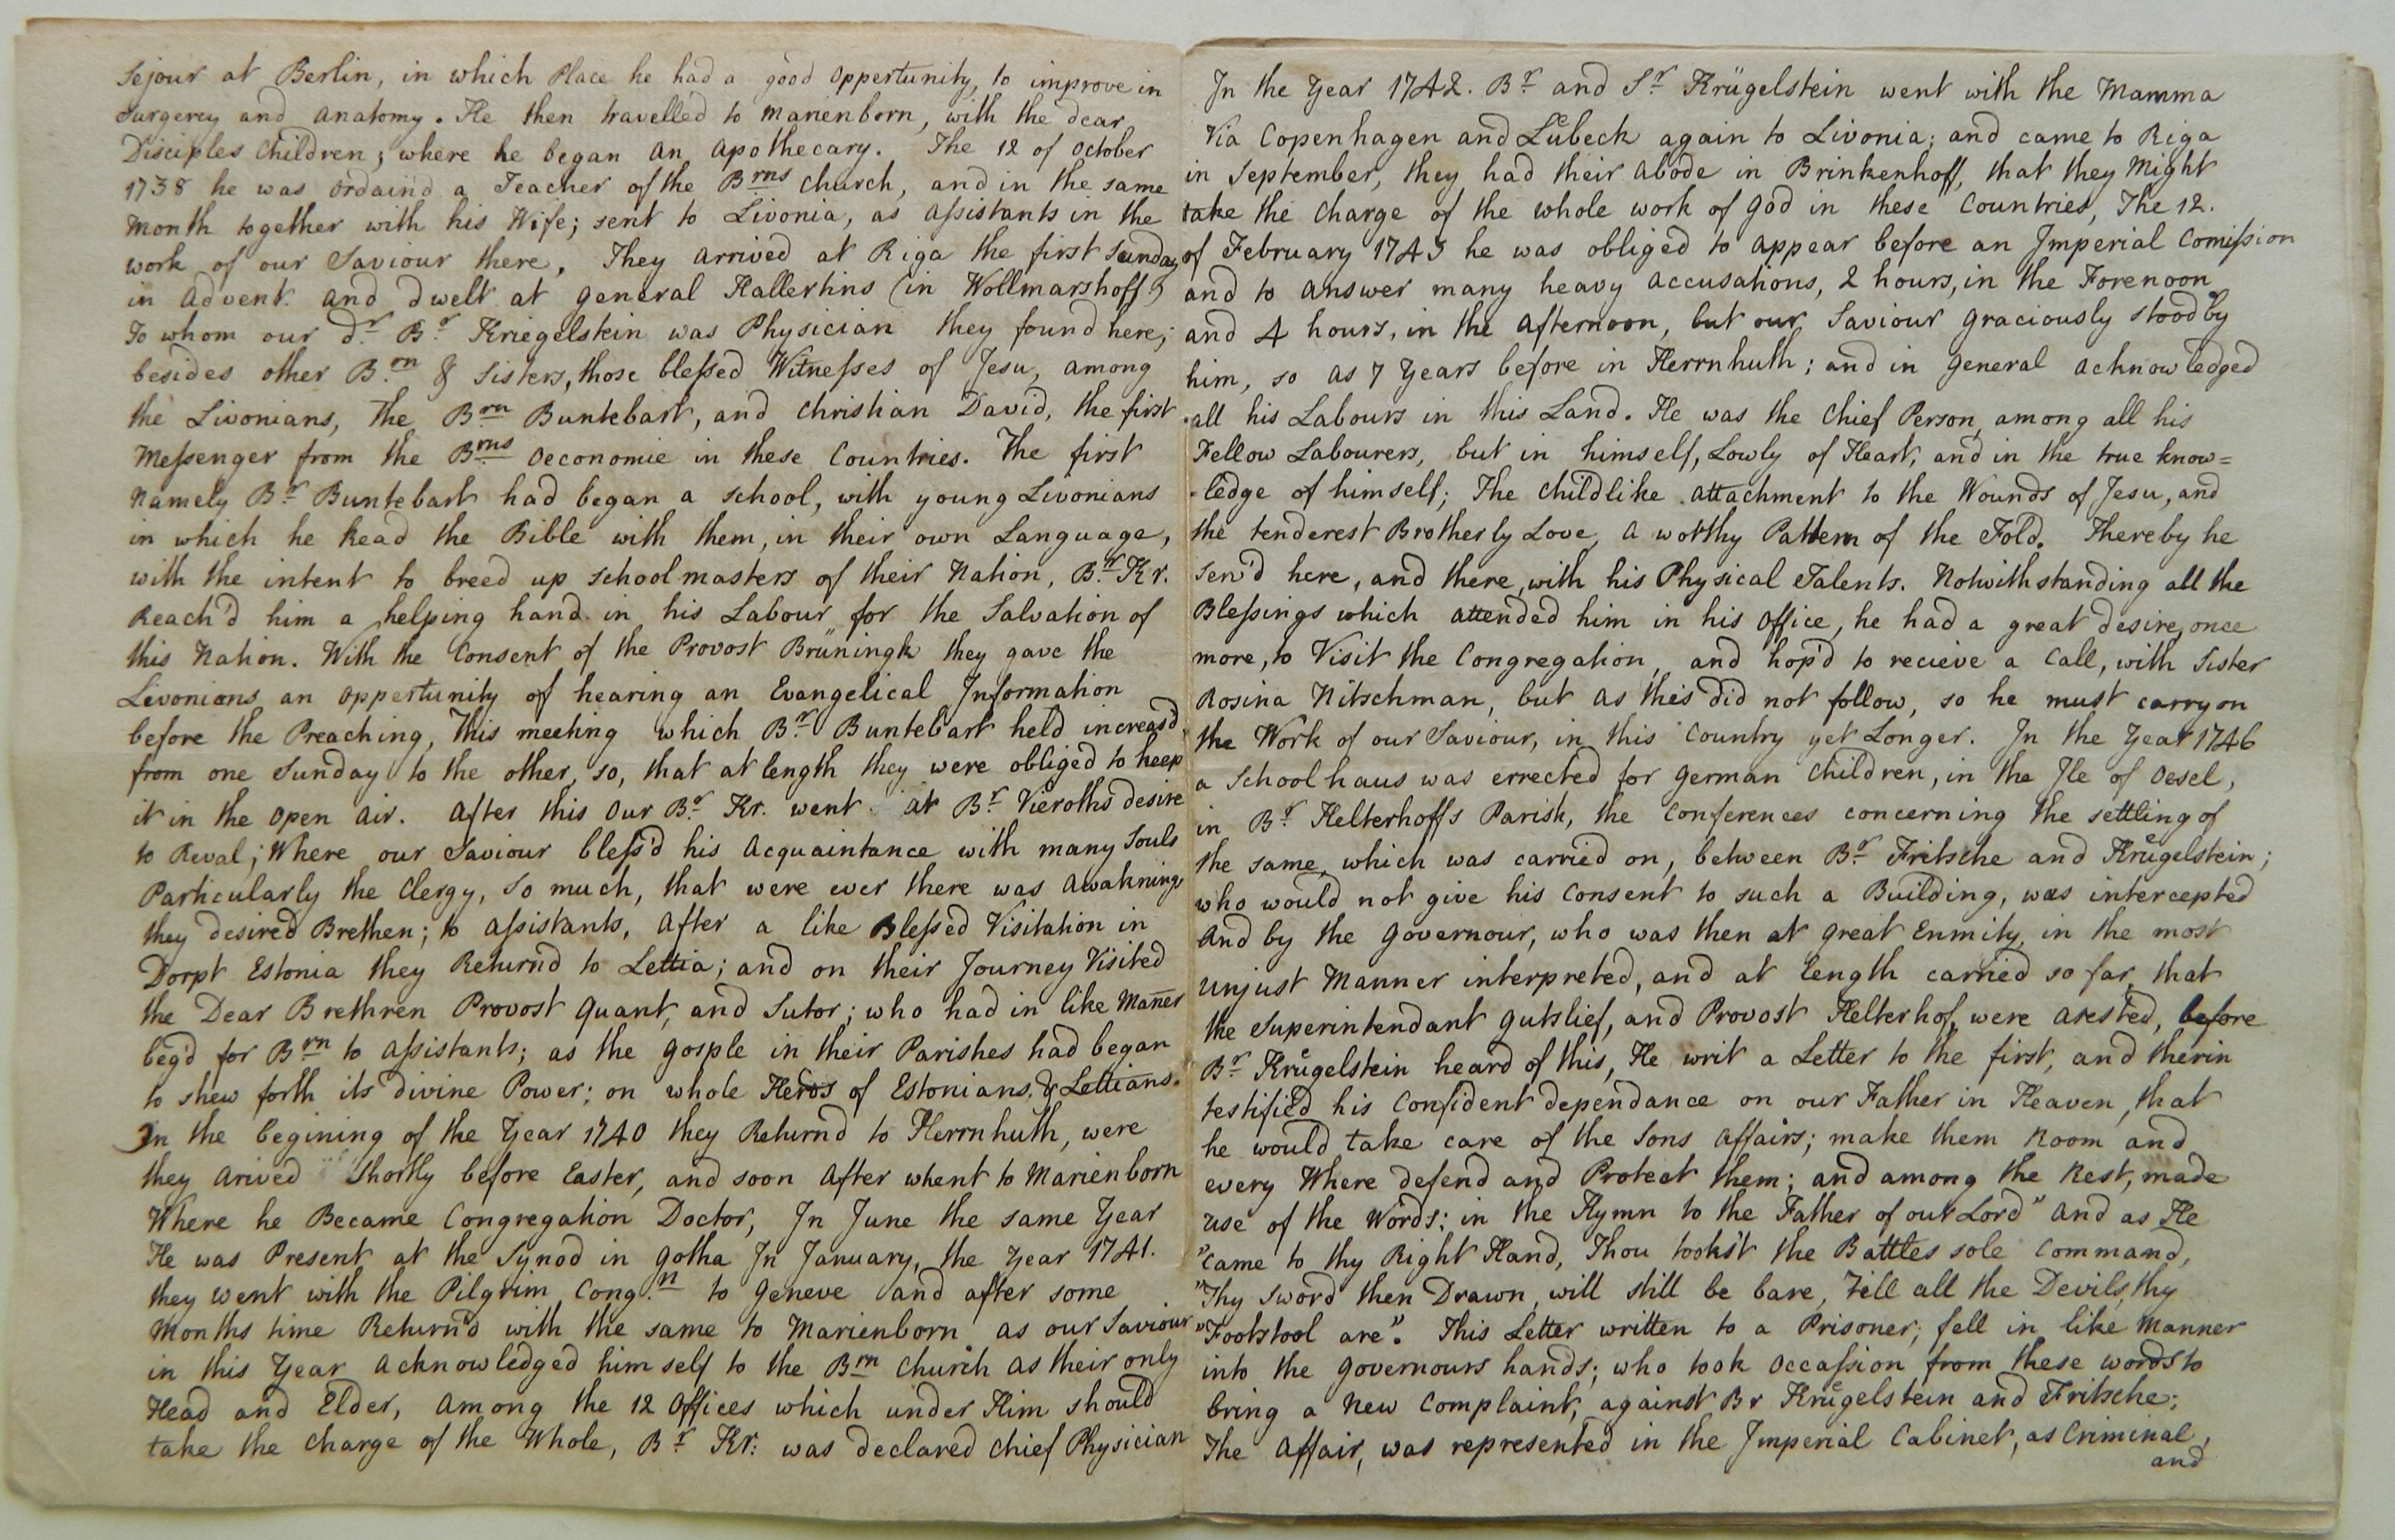 Sejour at Berlin, in which Place he had a good oppertunity, to improve in
surgerey and anatomy. He then travelled to Marienborn, with the dear
Disciples Children; where he began an apothecary. The 12 of october
1738 he was ordaind a Teacher of the Brns Church, and in the same
Month together with his Wife; sent to Livonia, as assistants in the
work of our Saviour there, They arrived at Riga the first Sunday
in advent. and dwelt at general Hallertins (in Wollmarshoff)
To whom our dr Br Kriegelstein was Physician they found here;
besides other Brn & Sisters, those blessed Witnesses of Jesu, among
the Livonians, The Brn Buntebart, and Christian David, the first
Messenger from the Brns oeconomie in these Countries. The first
Namely Br Buntebart had began a school, with young Livonians
in which he Read the Bible with them, in their own Language,
with the intent to breed up schoolmasters of their Nation, Br Kr.
Reach'd him a helping hand in his Labour for the Salvation of
this Nation. With the Consent of the Provost Brüningk they gave the
Livonians an oppertunity of hearing an Evangelical Information
before the Preaching, This meeting which Br Buntebart held increasd
from one Sunday to the other, so, that at length they were obliged to keep
it in the open air. after this our Br Kr. went at Br Vieroths desire
to Reval; Where our Saviour bless'd his acquaintance with many Souls
Particularly the Clergy, so much, that were ever there was awakning
they desired Brethen; to assistants, after a like Blessed Visitation in
Dorpt Estonia they Returnd to Lettia; and on their Journey Visited
the Dear Brethren Provost Quant, and Sutor; who had in like Maner
beg'd for Brn to assistants; as the gosple in their Parishes had began
to shew forth its divine Power; on whole Herds of Estonians, & Lettians.
In the begining of the Year 1740 they Returnd to Herrnhuth, were
they arived shortly before Easter, and soon after whent to Marienborn
Where he Became Congregation Doctor, In June the same Year
He was Present at the Synod in gotha In January, the Year 1741.
they went with the Pilgrim Congn to Geneve and after some
Months time Returnd with the same to Marienborn as our Saviour
in this Year acknowledged himself to the Brn Church as their only
Head and Elder, among the 12 offices which under Him should
take the Charge of the Whole, Br Kr: was declared Chief Physician
In the Year 1742. Br and Sr Krügelstein went with the Mamma
Via Copenhagen and Lubeck again to Livonia; and came to Riga
in September, they had their abode in Brinkenhoff, that they Might
take the Charge of the whole work of god in these Countries, The 12.
of February 1743 he was obliged to appear before an Imperial Comission
and to answer many heavy accusations, 2 hours, in the Forenoon
and 4 hours, in the afternoon, but our Saviour graciously stood by
him, so as 7 Years before in Herrnhuth; and in general acknowledged
all his Labours in this Land. He was the Chief Person among all his
Fellow Labourers, but in himself, Lowly of Heart, and in the true know=
ledge of himself; The childlike attachment to the Wounds of Jesu, and
the tenderest Brotherly Love, a worthy Pattern of the Fold. Thereby he
serv'd here, and there, with his Physical Talents. Notwithstanding all the
Blessings which attended him in his office, he had a great desire, once
more, to Visit the Congregation, and hop'd to recieve a Call, with Sister
Rosina Nitschman, but as this did not follow, so he must carry on
the Work of our Saviour, in this Country yet Longer. In the Year 1746
a School haus was errected for german Children, in the Ile of Oesel,
in Br Helterhoffs Parish, the Conferences concerning the settling of
the same, which was carried on, between Br Fritsche and Krügelstein;
who would not give his Consent to such a Building, was intercepted
and by the Governour, who was then at great Enmity, in the most
unjust Manner interpreted, and at length carried so far, that
the Superintendant gutslief, and Provost Helterhof, were arested, before
Br Krügelstein heard of this, He writ a Letter to the first, and therin
testified his Confident dependance on our Father in Heaven, that
he would take care of the Sons affairs; make them Room and
every Where defend and Protect them; and among the Rest, made
use of the Words; in the Hymn to the Father of our Lord" and as He
"came to thy Right Hand, Thou tooks't the Battles sole Command,
"Thy Sword then Drawn, will still be bare, Till all the Devils, thy
"Footstool are". This Letter written to a Prisoner; fell in like Manner
into the governours hands; who took occassion from these words to
bring a New Complaint, against Br Krügelstein and Fritsche;
The affair, was represented in the Imperial Cabinet, as Criminal,
and